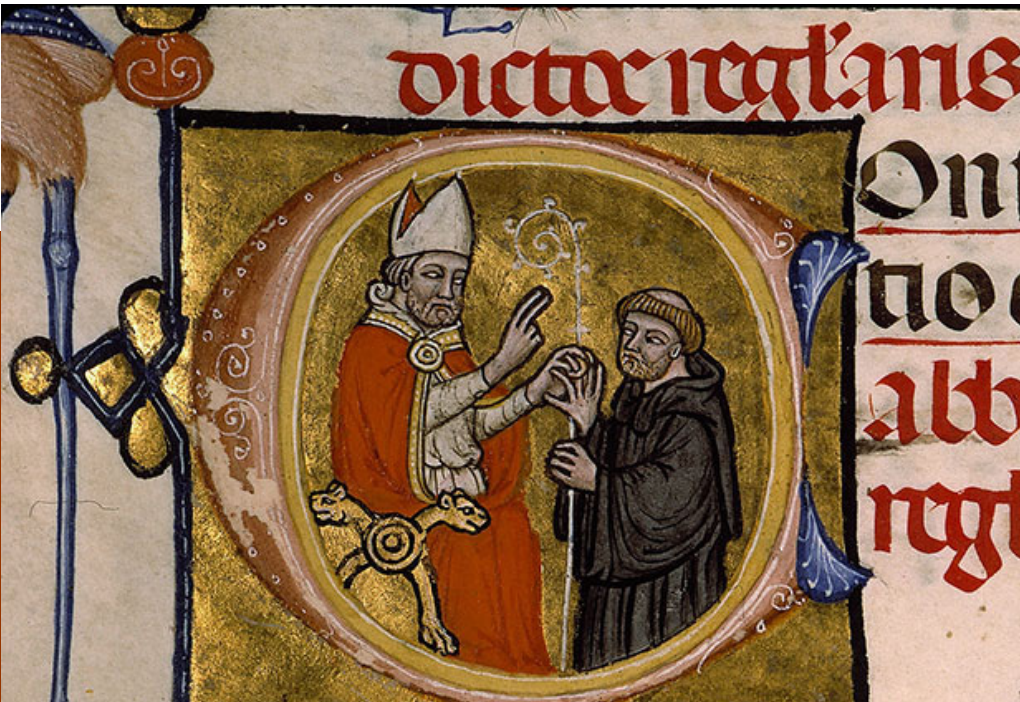 dictoe regl'aris
On
tio
abb
regl